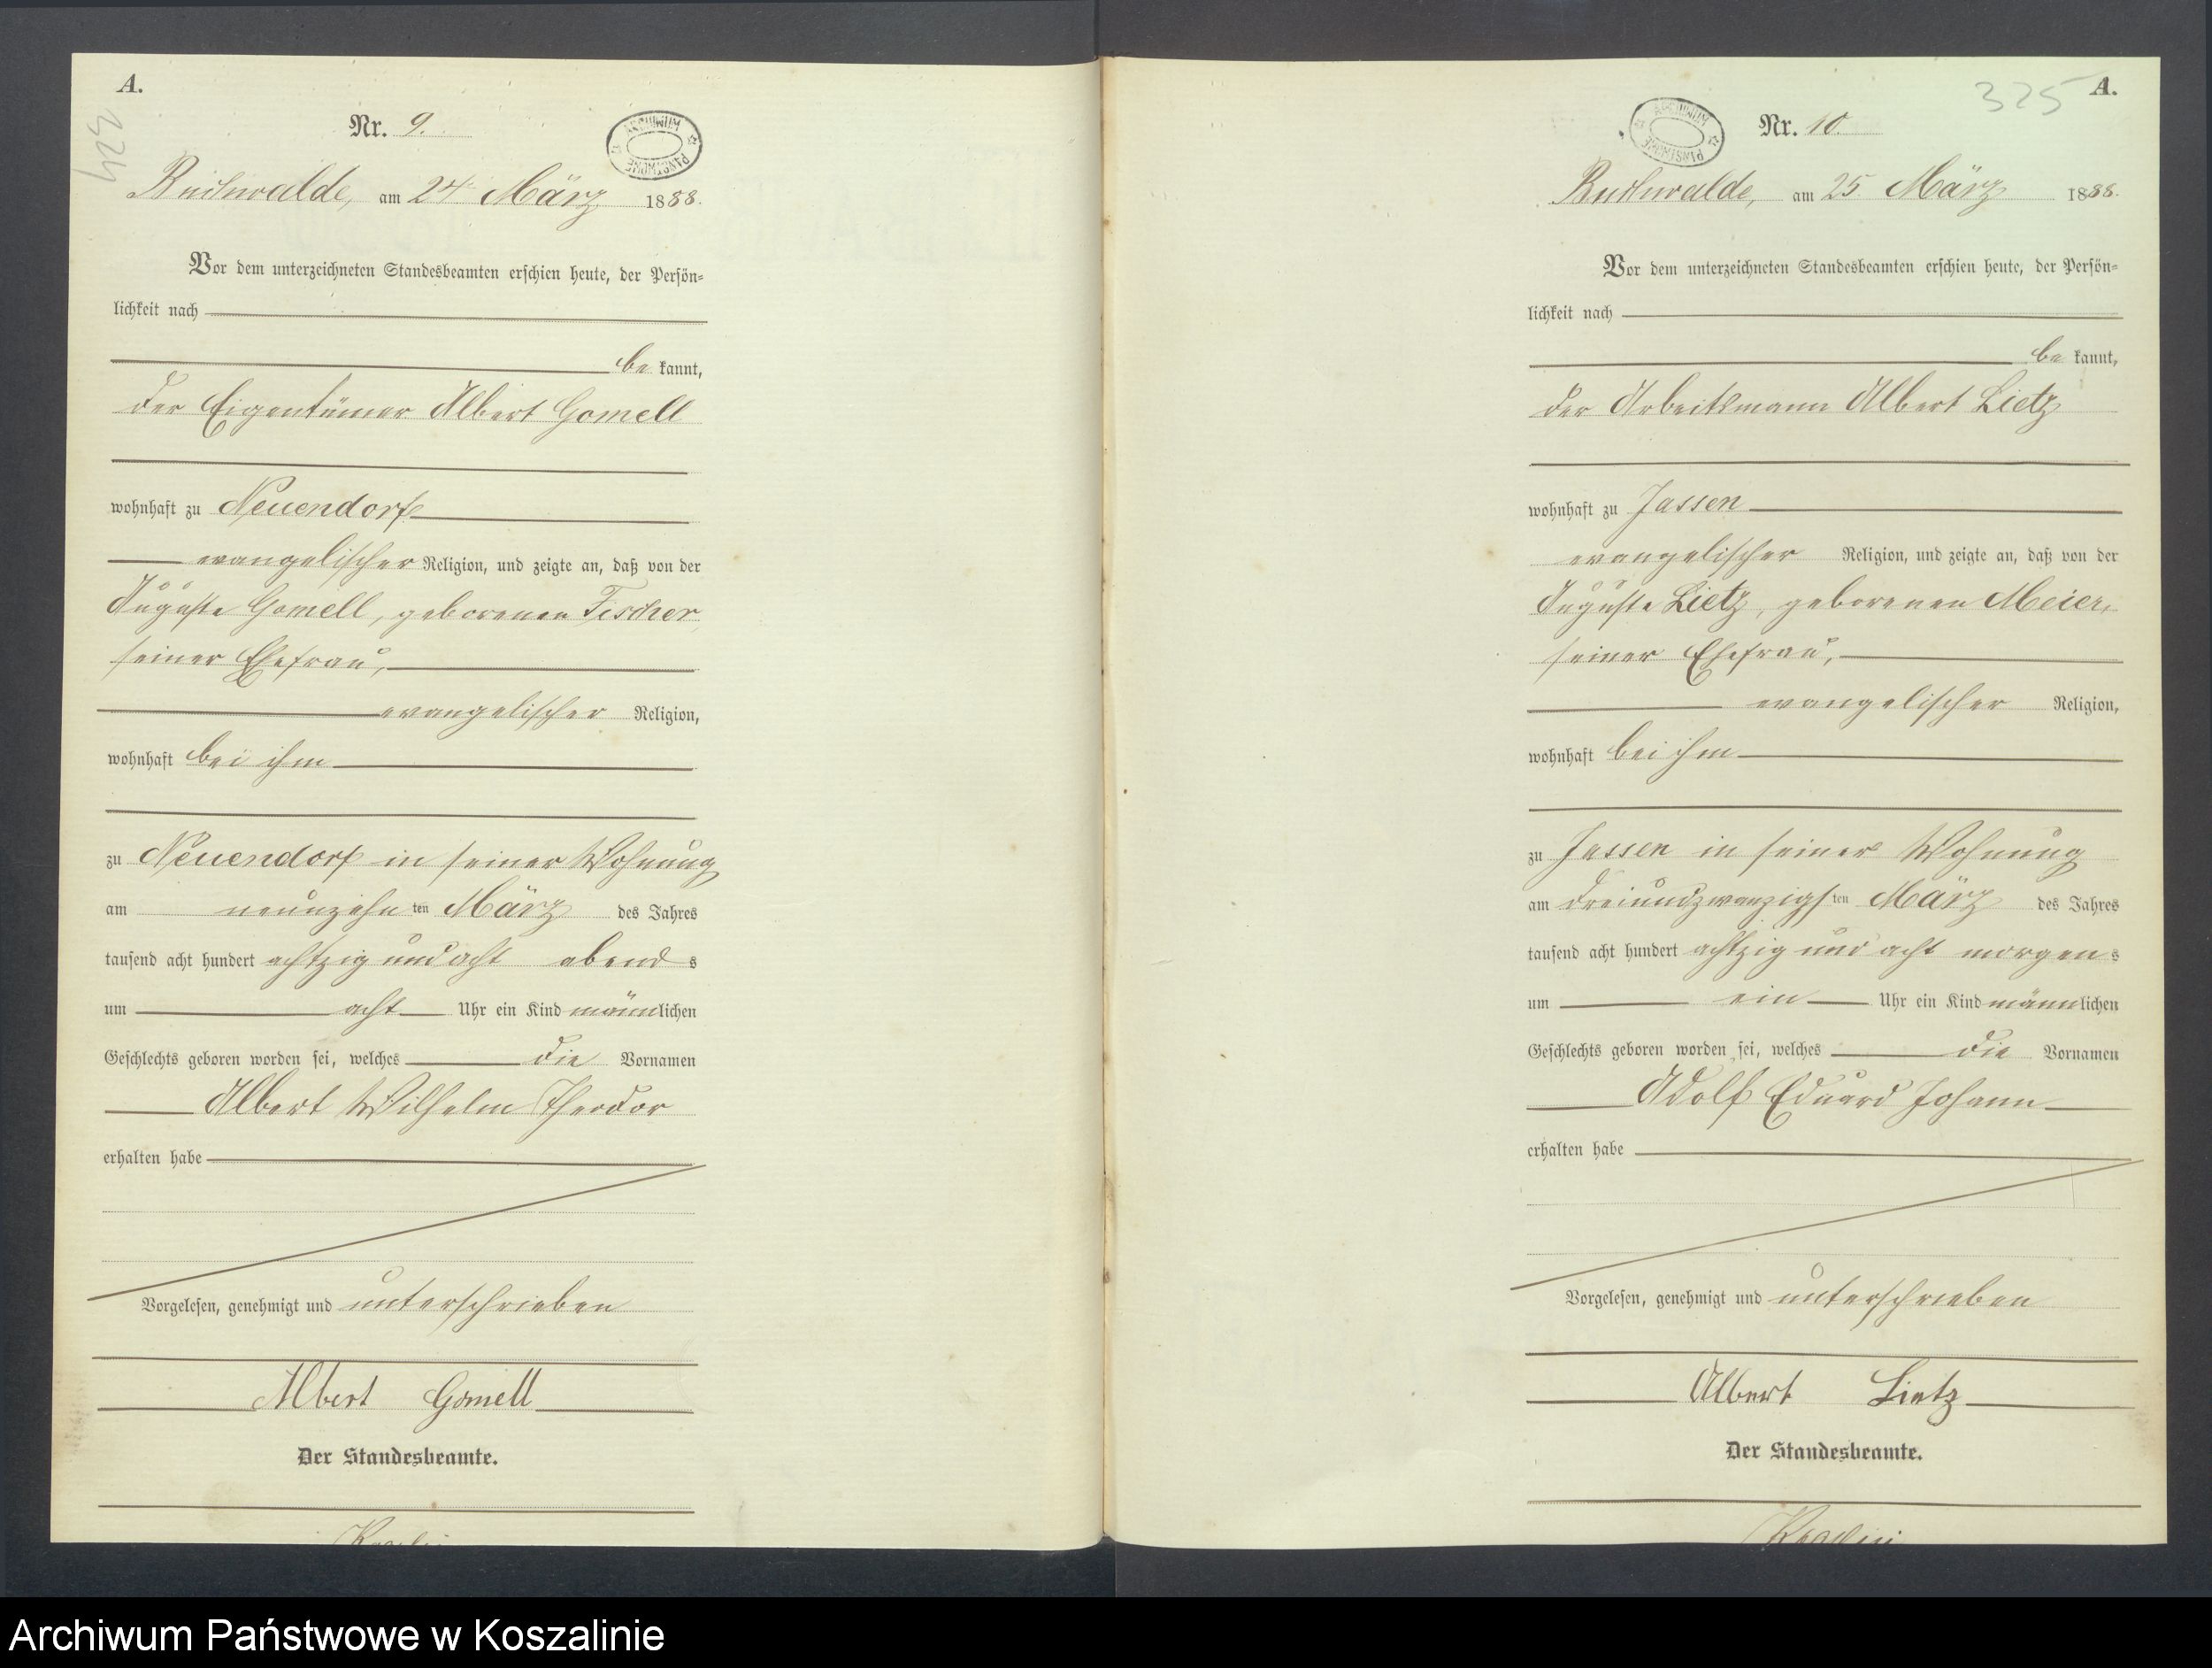 A.
324
Nr. 9.
ARCHIWUM PAŃSTWOWE
Buchwalde, am 24. März 1888.
Vor dem unterzeichneten Standesbeamten erschien heute, der Persön=
lichkeit nach
be kannt,
der Eigentümer Albert Gomell
wohnhaft zu Neuendorf
evangelischer Religion, und zeigte an, daß von der
Auguste Gomell, geborenen Fischer,
seiner Ehefrau,
evangelischer Religion,
wohnhaft bei ihm
zu Neuendorf in seiner Wohnung
am neunzehn ten März des Jahres
tausend acht hundert achtzig und acht abend s
um acht Uhr ein Kind männlichen
Geschlechts geboren worden sei, welches die Vornamen
Albert Wilhelm Theodor
erhalten habe
Vorgelesen, genehmigt und unterschrieben
Albert Gomell
Der Standesbeamte.
325
A.
ARCHIWUM PAŃSTWOWE
Nr. 10.
Buchwalde, am 25. März 1888.
Vor dem unterzeichneten Standesbeamten erschien heute, der Persön=
lichkeit nach
be kannt,
der Arbeitsmann Albert Lietz
wohnhaft zu Jassen
evangelischer Religion, und zeigte an, daß von der
Auguste Lietz, geborenen Meier,
seiner Ehefrau,
evangelischer Religion,
wohnhaft bei ihm
zu Jassen in seiner Wohnung
am dreiundzwanzigsten März des Jahres
tausend acht hundert achtzig und acht morgen s
um ein Uhr ein Kind männlichen
Geschlechts geboren worden sei, welches die Vornamen
Adolf Eduard Johann
erhalten habe
Vorgelesen, genehmigt und unterschrieben
Albert Lietz
Der Standesbeamte.
Archiwum Państwowe w Koszalinie